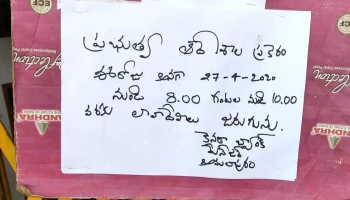 ప్రభుత్వ ఆదేశాల ప్రకారం
ఈరోజు అనగా 27-4-2020
నుండి 8.00 గంటల నుండి 10.00
వరకు లావాదేవీలు జరుగును.
కెనరా బ్యాంక్
మేనేజర్
ECF
ECF
ANDHRA
ANDHRA